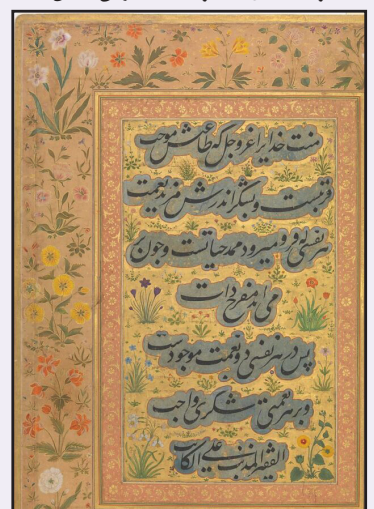 منت خدایرا عز و جل که طاعتش موجب
قربتست و بشکر اندرش مزید نعمت
هر نفسی که فرو میرود ممد حیاتست و چون
بر می آید مفرح ذات
پس در هر نفسی دو نعمت موجودست
و بر هر نعمتی شکری واجب
الفقیر المذنب علی الکاتب